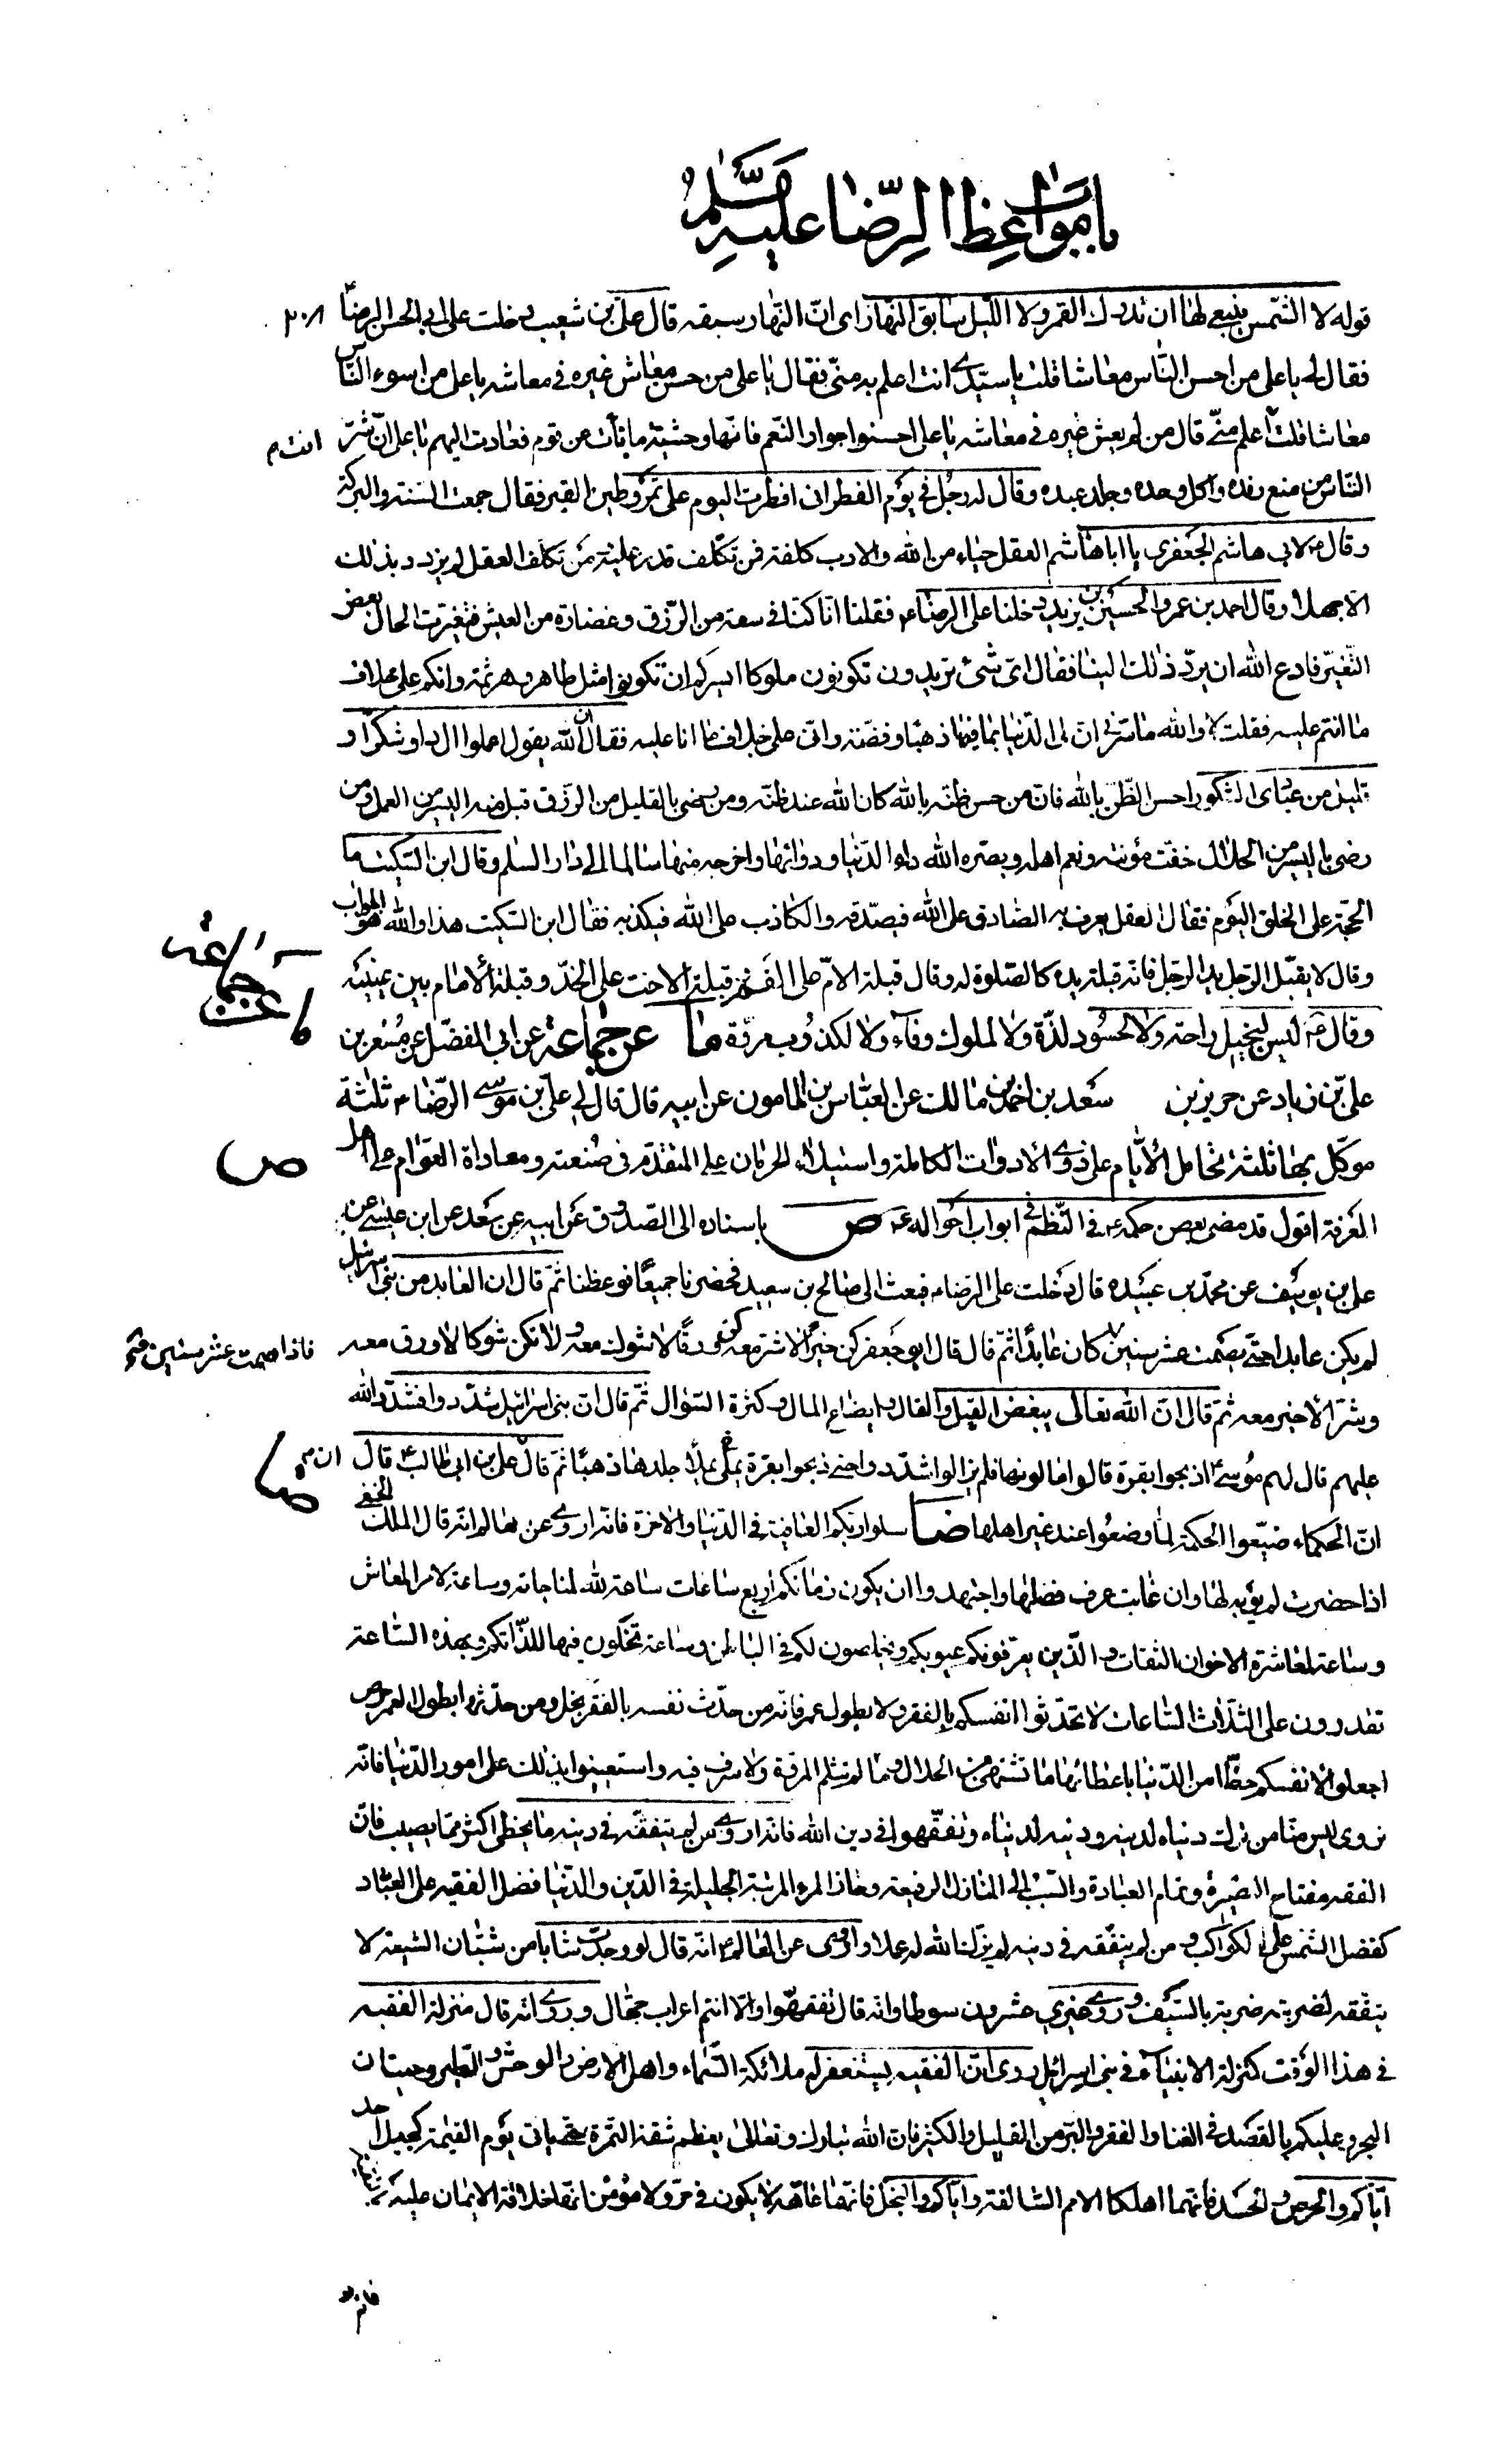 باب مواعظ الرضا عليه السلم
قوله لا الشمس ينبغي لها ان تدرك القمر ولا الليل سابق النهار اى انّ النهار سبقه قال علي بن شعيب دخلت على ابي الحسن الرضا ٢٠٨
فقال لي يا على من احسن الناس معاشا قلت يا سيدي انت اعلم به منّي فقال يا على من حسن معاش غيره في معاشه يا على من اسوء الناس
معاشا قلت انت م اعلم منّي قال من لم يعش غيره في معاشه يا على احسنوا جوار النعم فانها وحشية ما نأت عن قوم فعادت اليهم يا على انّ شرّ
الناس من منع رفده واكل وحده وجلد عبده وقال له رجل في يوم الفطر انى افطرت اليوم على تمر وطين القبر فقال جمعت السنة والبركة
وقال ع لابي هاشم الجعفري يا ابا هاشم العقل حباء من الله والادب كلفة فمن تكلف قدر عليه من تكلف العقل لم يزدد بذلك
الا جهلا وقال احمد بن عمر والحسين بن يزيد دخلنا على الرضا ع فقلنا انا كنا في سعة من الرزق وغضارة من العيش فتغيرت الحال بعض
التغير فادع الله ان يردّ ذلك الينا فقال اىّ شئ تريدون تكونون ملوكا ايسركم ان تكونوا مثل طاهر وهرثمة وانكم على خلاف
ما انتم عليه فقلت لا والله ما سرني ان لى الدنيا بما فيها ذهبا وفضة وانى على خلاف ما انا عليه فقال ان الله يقول اعملوا ال داود شكرا و
قليل من عبادى الشكور احسن الظن بالله فان من حسن ظنه بالله كان الله عند ظنه ومن رضى بالقليل من الرزق قبل منه اليسير من العمل ومن
رضى باليسير من الحلال خفت مؤنته ونعم اهله وبصره الله داء الدنيا ودوائها واخرجه منها سالما الى دار السلم وقال ابن السكيت ما
الحجة على الخلق اليوم فقال العقل يعرف به الصادق على الله فيصدقه والكاذب على الله فيكذبه فقال ابن السكيت هذا والله هو الجواب
وقال لا يقبل الرجل يد الرجل فانّ قبلة يده كالصلوة له وقال قبلة الامّ على الفم وقبلة الاخت على الخدّ وقبلة الأمام بين عينيه
وقال ع ليس لبخيل راحة ولا لحسود لذة ولا لملوك وفاء ولا لكذوب مروّة ما عن جماعة عن ابي المفضل عن مسعر بن
علي بن زياد عن حريز بن سعد بن احمد بن مالك عن العباس بن المامون عن ابيه قال قال لي علي بن موسى الرضا ع ثلثة
موكل بها ثلثة تحامل الأيام على ذوي الأدوات الكاملة واستيلاء الحرمان على المتقدم في صنعته ومعاداة العوام على اهل
المعرفة اقول قد مضى بعض حكمه ع في النظم في ابواب احواله ع ص باسناده الى الصدوق عن ابيه عن سعد عن ابن عيسى عن
علي بن يوسف عن محمد بن عبيده قال دخلت على الرضا ع فبعث الى صالح بن سعيد فحضرنا جميعا فوعظنا ثم قال ان العابد من بني اسرائيل
لم يكن عابدا حتى يصمت عشر سنين فاذا صمت عشر سنين كان عابدا ثم قال قال ابو جعفر كن خيرا لا شر معه كن ورقا لا شوك معه ولا تكن شوكا لا ورق معه
وشرا لا خير معه ثم قال انّ الله تعالى يبغض القيل والقال وايضاع المال وكثرة السؤال ثم قال ان بني اسرائيل شدّدوا فشدد الله
عليهم قال لهم موسى ع اذبحوا بقرة قالوا ما لونها فلم يزالوا شدّدوا حتى ذبحوا بقرة يملى بملأ جلدها ذهبا ثم قال علي بن ابي طالب ع قال
انّ الحكماء ضيعوا الحكمة لما وضعوا عند غير اهلها ضا سلوا ربكم العافية في الدنيا والاخرة فانّه اروي عن العالم انّه قال الملك الخفي
اذا حضرت لم يؤبه لها وان غابت عرف فضلها واجتهدوا ان يكون زمانكم اربع ساعات ساعة لله لمناجاته وساعة لامر المعاش
وساعة لمعاشرة الاخوان الثقات والذين يعرفونكم عيوبكم ويخلصون لكم في الباطن وساعة تخلون فيها للذاتكم وبهذه الساعة
تقدرون على الثلث الساعات لا تحدثوا انفسكم بالفقر ولا بطول عمر فانّه من حدّث نفسه بالفقر بخل ومن حدّثها بطول العمر حرص
اجعلوا لانفسكم حظا من الدنيا باعطائها ما تشتهي من الحلال وما لم يثلم المروة ولا سرف فيه واستعينوا بذلك على امور الدنيا فانّه
نروى ليس منا من ترك دنياه لدينه ودينه لدنياه وتفقهوا في دين الله فانّه اروي من لم يتفقه في دينه ما يخطى اكثر مما يصيب فانّ
الفقه مفتاح البصيرة وتمام العبادة والسبب الى المنازل الرفيعة وحاز المرء المرتبة الجليلة في الدين والدنيا فضل الفقيه على العباد
كفضل الشمس على الكواكب ومن لم يتفقه في دينه لم يزك الله له عملا واروى عن العالم ع انّه قال لو وجدت شابا من شبان الشيعة لا
يتفقه لضربته ضربة بالسيف وروي غيري عشرون سوطا وانّه قال تفقهوا والا انتم اعراب جهال وروي انّه قال منزلة الفقيه
في هذا الوقت كمنزلة الانبياء في بني اسرائيل روى انّ الفقيه يستغفر له ملائكة السماء واهل الارض والوحش والطير وحيتان
البحر وعليكم بالقصد في الغنا والفقر والبر من القليل والكثير فان الله تبارك وتعالى يعظم شقة التمرة حتى ياتي يوم القيمة كجبل احد
اياكم والحرص والحسد فانهما اهلكا الامم السالفة واياكم والبخل فانها عاهة لا يكون في حرّ ولا مؤمن انها خلاف الايمان عليكم